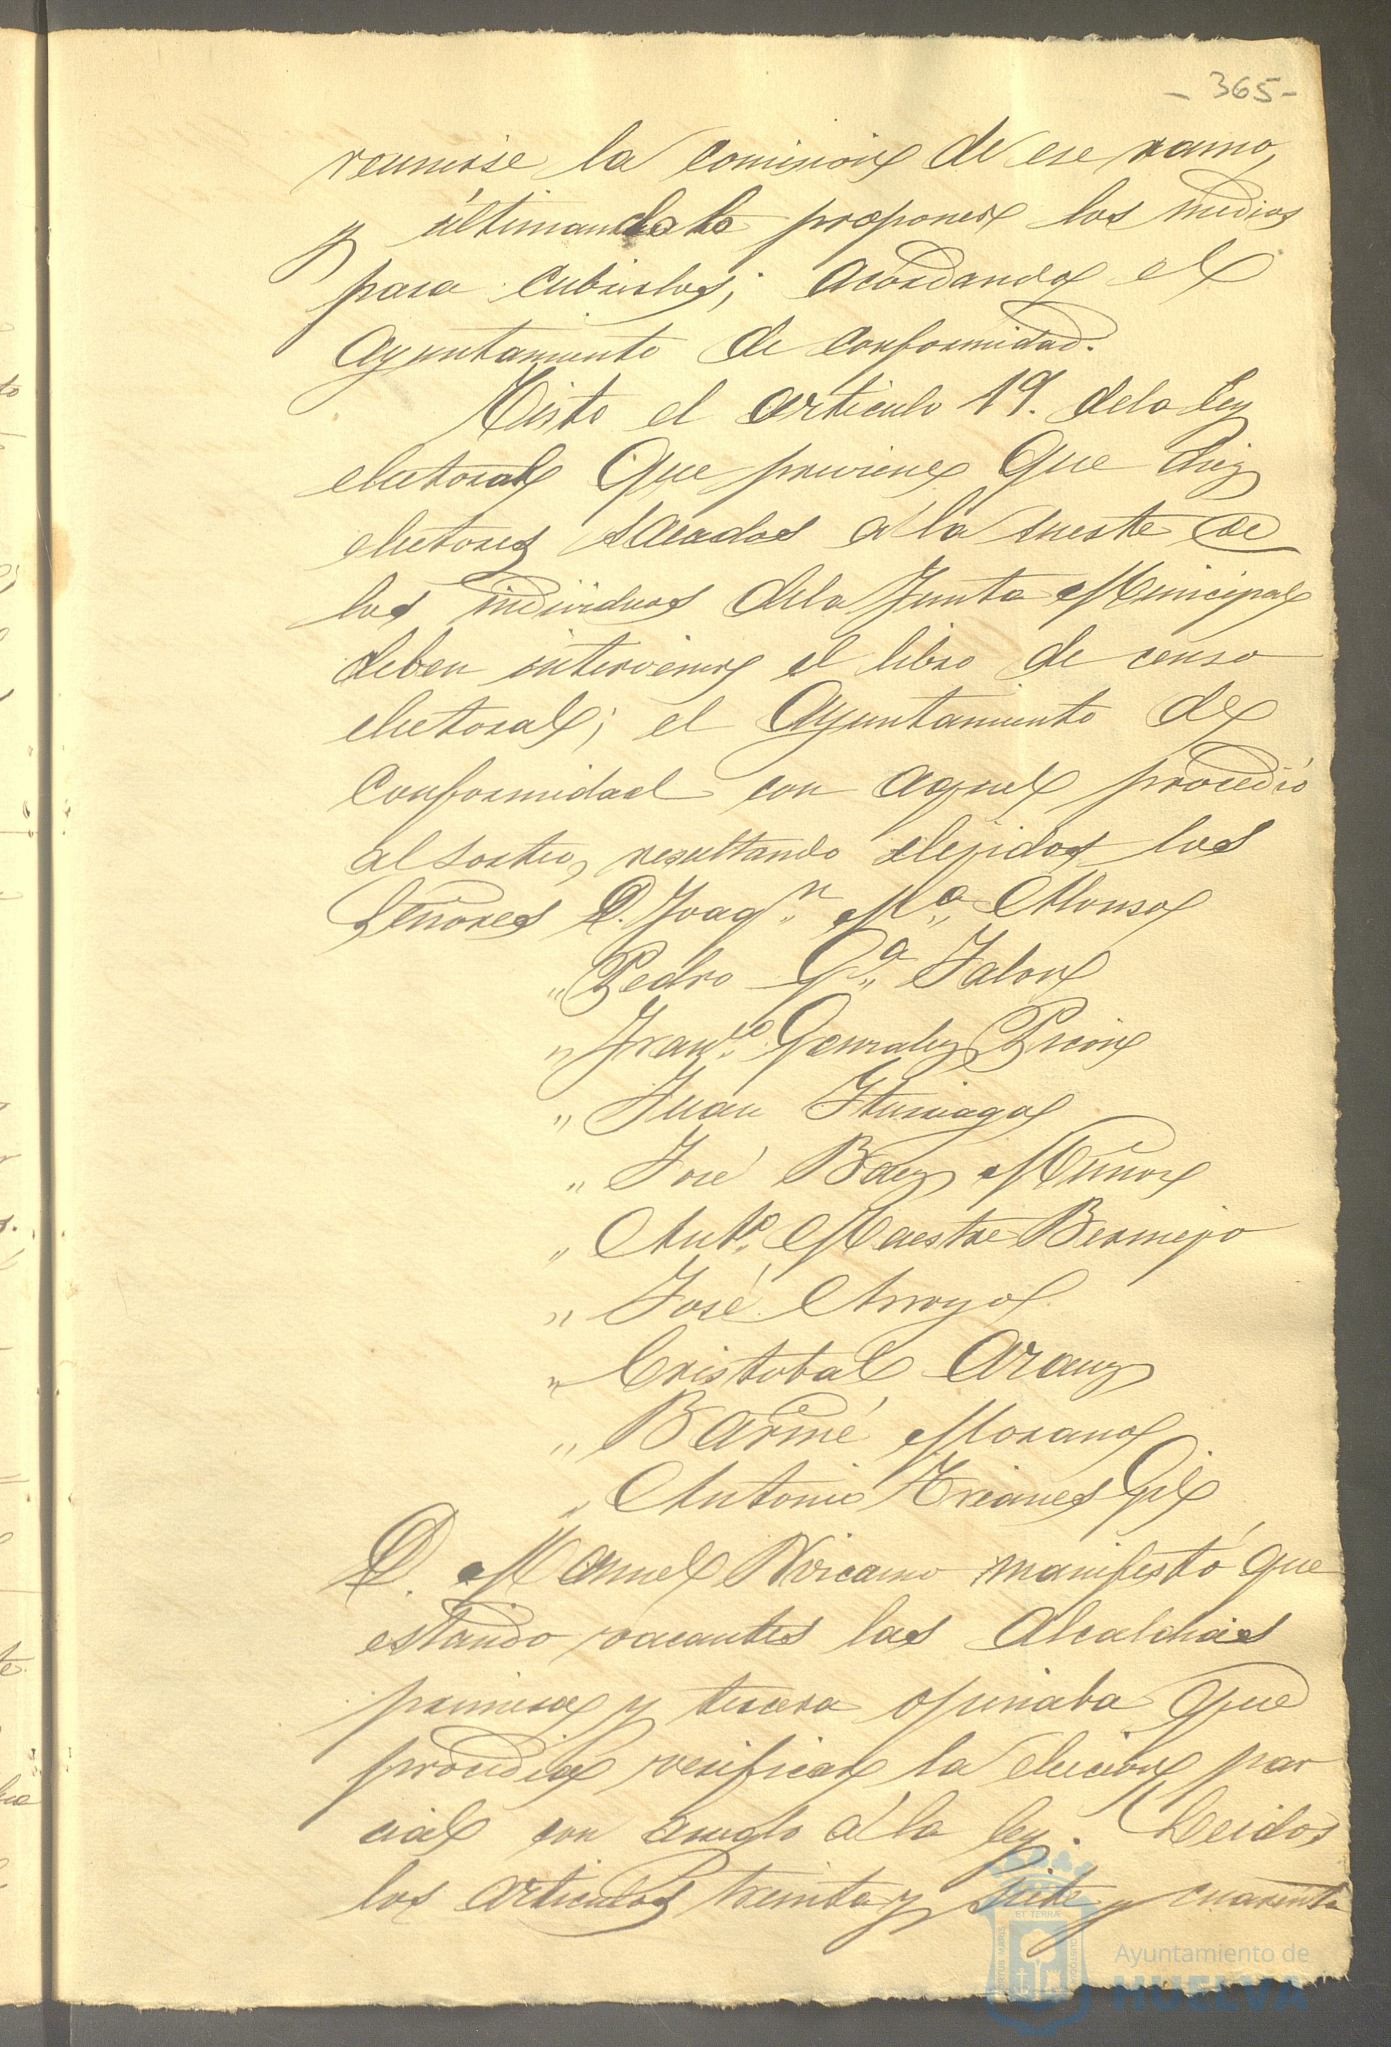 - 365-
reunirse la comision de ese ramo,
y ultimandolo proponer los medios
para cubrirlos; acordando el
Ayuntamiento de conformidad.
Visto el articulo 19. dela Ley
electoral que previene que diez
electores sacados á la suerte de
los individuos dela Junta Municipal
deben intervenir el libro de censo
electoral; el Ayuntamiento de
conformidad con aquel procedió
al sorteo, resultando elejidos los
Señores D. Joaqn. Ma. Alonso
" Pedro Ga. Jalon
" Franco. Gonzalez Picon
" Juan Iturriaga
" José Baez Muñoz
" Anto. Maestre Bermejo
" José Arroyo
" Cristobal Arauz
" Barmé Morano
" Antonio Trianes Gil
D. Manuel manifestó que
estando vacantes las Alcaldias
primera y tercera opinaba que
procedia verificar la eleccion par
cial con arreglo á la ley. Leidos
los articulos treinta y siete y cuarenta
Ayuntamiento de
HUELVA